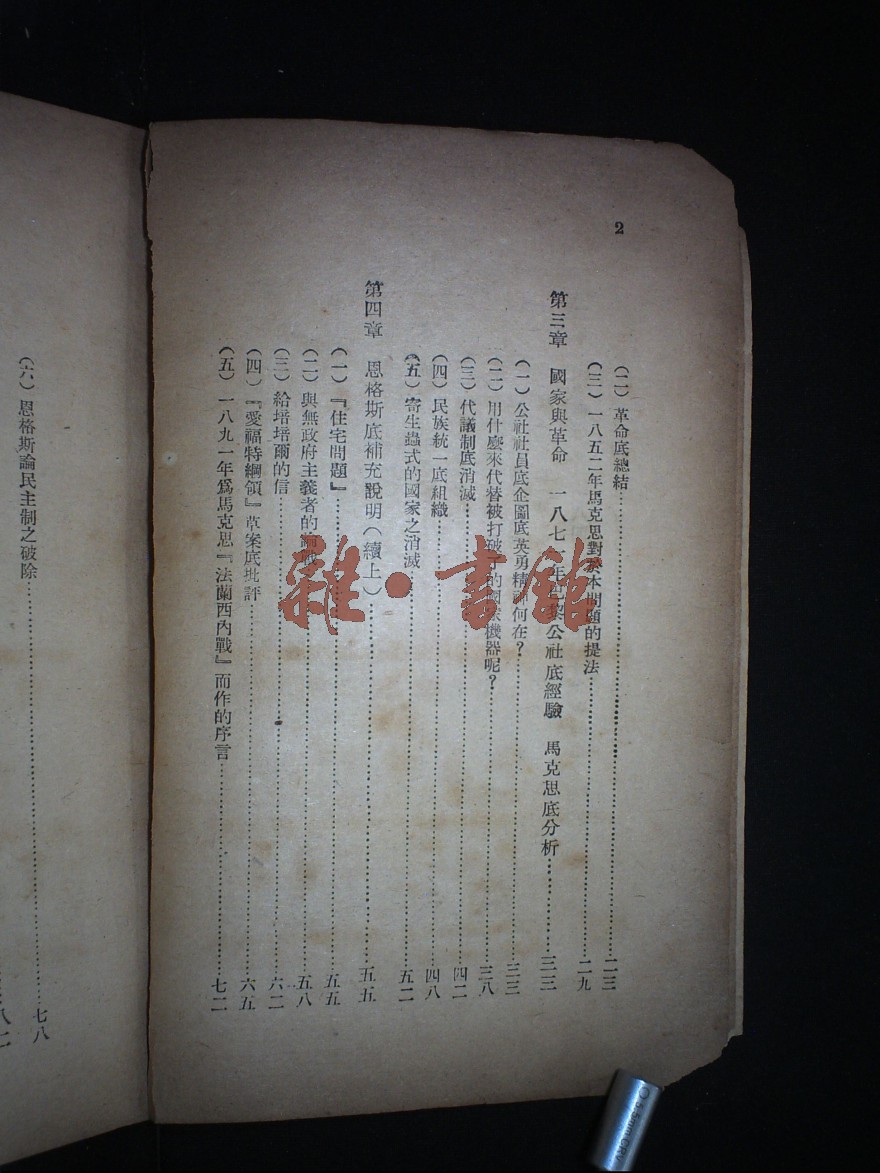 2
（二）革命底總結……二三
（三）一八五二年馬克思對於本問題的提法……二九
第三章 國家與革命 一八七一年巴黎公社底經驗 馬克思底分析……三三
（一）公社社員底企圖底英勇精神何在？……三三
（二）用什麼來代替被打破了的國家機器呢？……三八
（三）代議制底消滅……四二
（四）民族統一底組織……四八
（五）寄生蟲式的國家之消滅……五二
第四章 恩格斯底補充說明（續上）……五五
（一）『住宅問題』……五五
（二）與無政府主義者的論戰……五八
（三）給培培爾的信……六二
（四）『愛福特綱領』草案底批評……六五
（五）一八九一年爲馬克思『法蘭西內戰』而作的序言……七二
（六）恩格斯論民主制之破除……七八
雜·書館